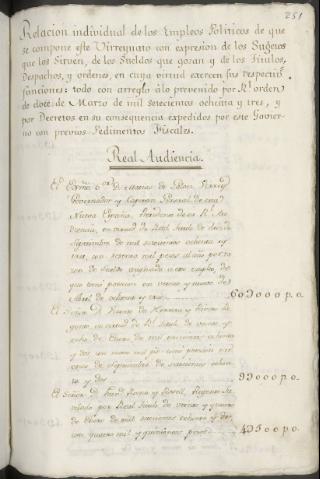 251
Relacion individual de los Empleos Politicos de que
se compone este Virreynato con expresion de los Sugetos
que los Sirven, de los Sueldos que gozan y de los Titulos,
Despachos, y ordenes, en cuya virtud exercen sus respectivas
funciones: todo con arreglo a lo prevenido por Rl. orden
de doce de Marzo de mil setecientos ochenta y tres, y
por Decretos en su consequencia expedidos por este Govier-
no con previos Pedimentos Fiscales.
Real Audiencia.
El Exmô. Sr. Dn. Matias de Galvez Virrey
Governador y Capitan General de esta
Nueva España, Presidente de su Rl. Au-
diencia, en virtud de Real Titulo de
Septiembre de mil setecientos ochenta y
tres, con sesenta mil pesos al año por ra-
zon de sueldo asignado a este empleo, de
que tomó posesion en veinte y nueve de
Abril de ochenta y tres
60D000 p.o.
El Señor Dn. Vicente de Herrera y Rivero Re-
gente en virtud de Rl. Titulo de veinte y
ocho de Enero de mil setecientos ochenta
y dos con nueve mil ps. tomó posesion
de Septiembre de setecientos ochen-
ta y dos
9D000 p.o.
El Señor Dn.
por Real Titulo de veinte y quatro
de Enero de mil setecientos ochenta y dos
con quatro mil y quinientos pesos
4D500 p.o.